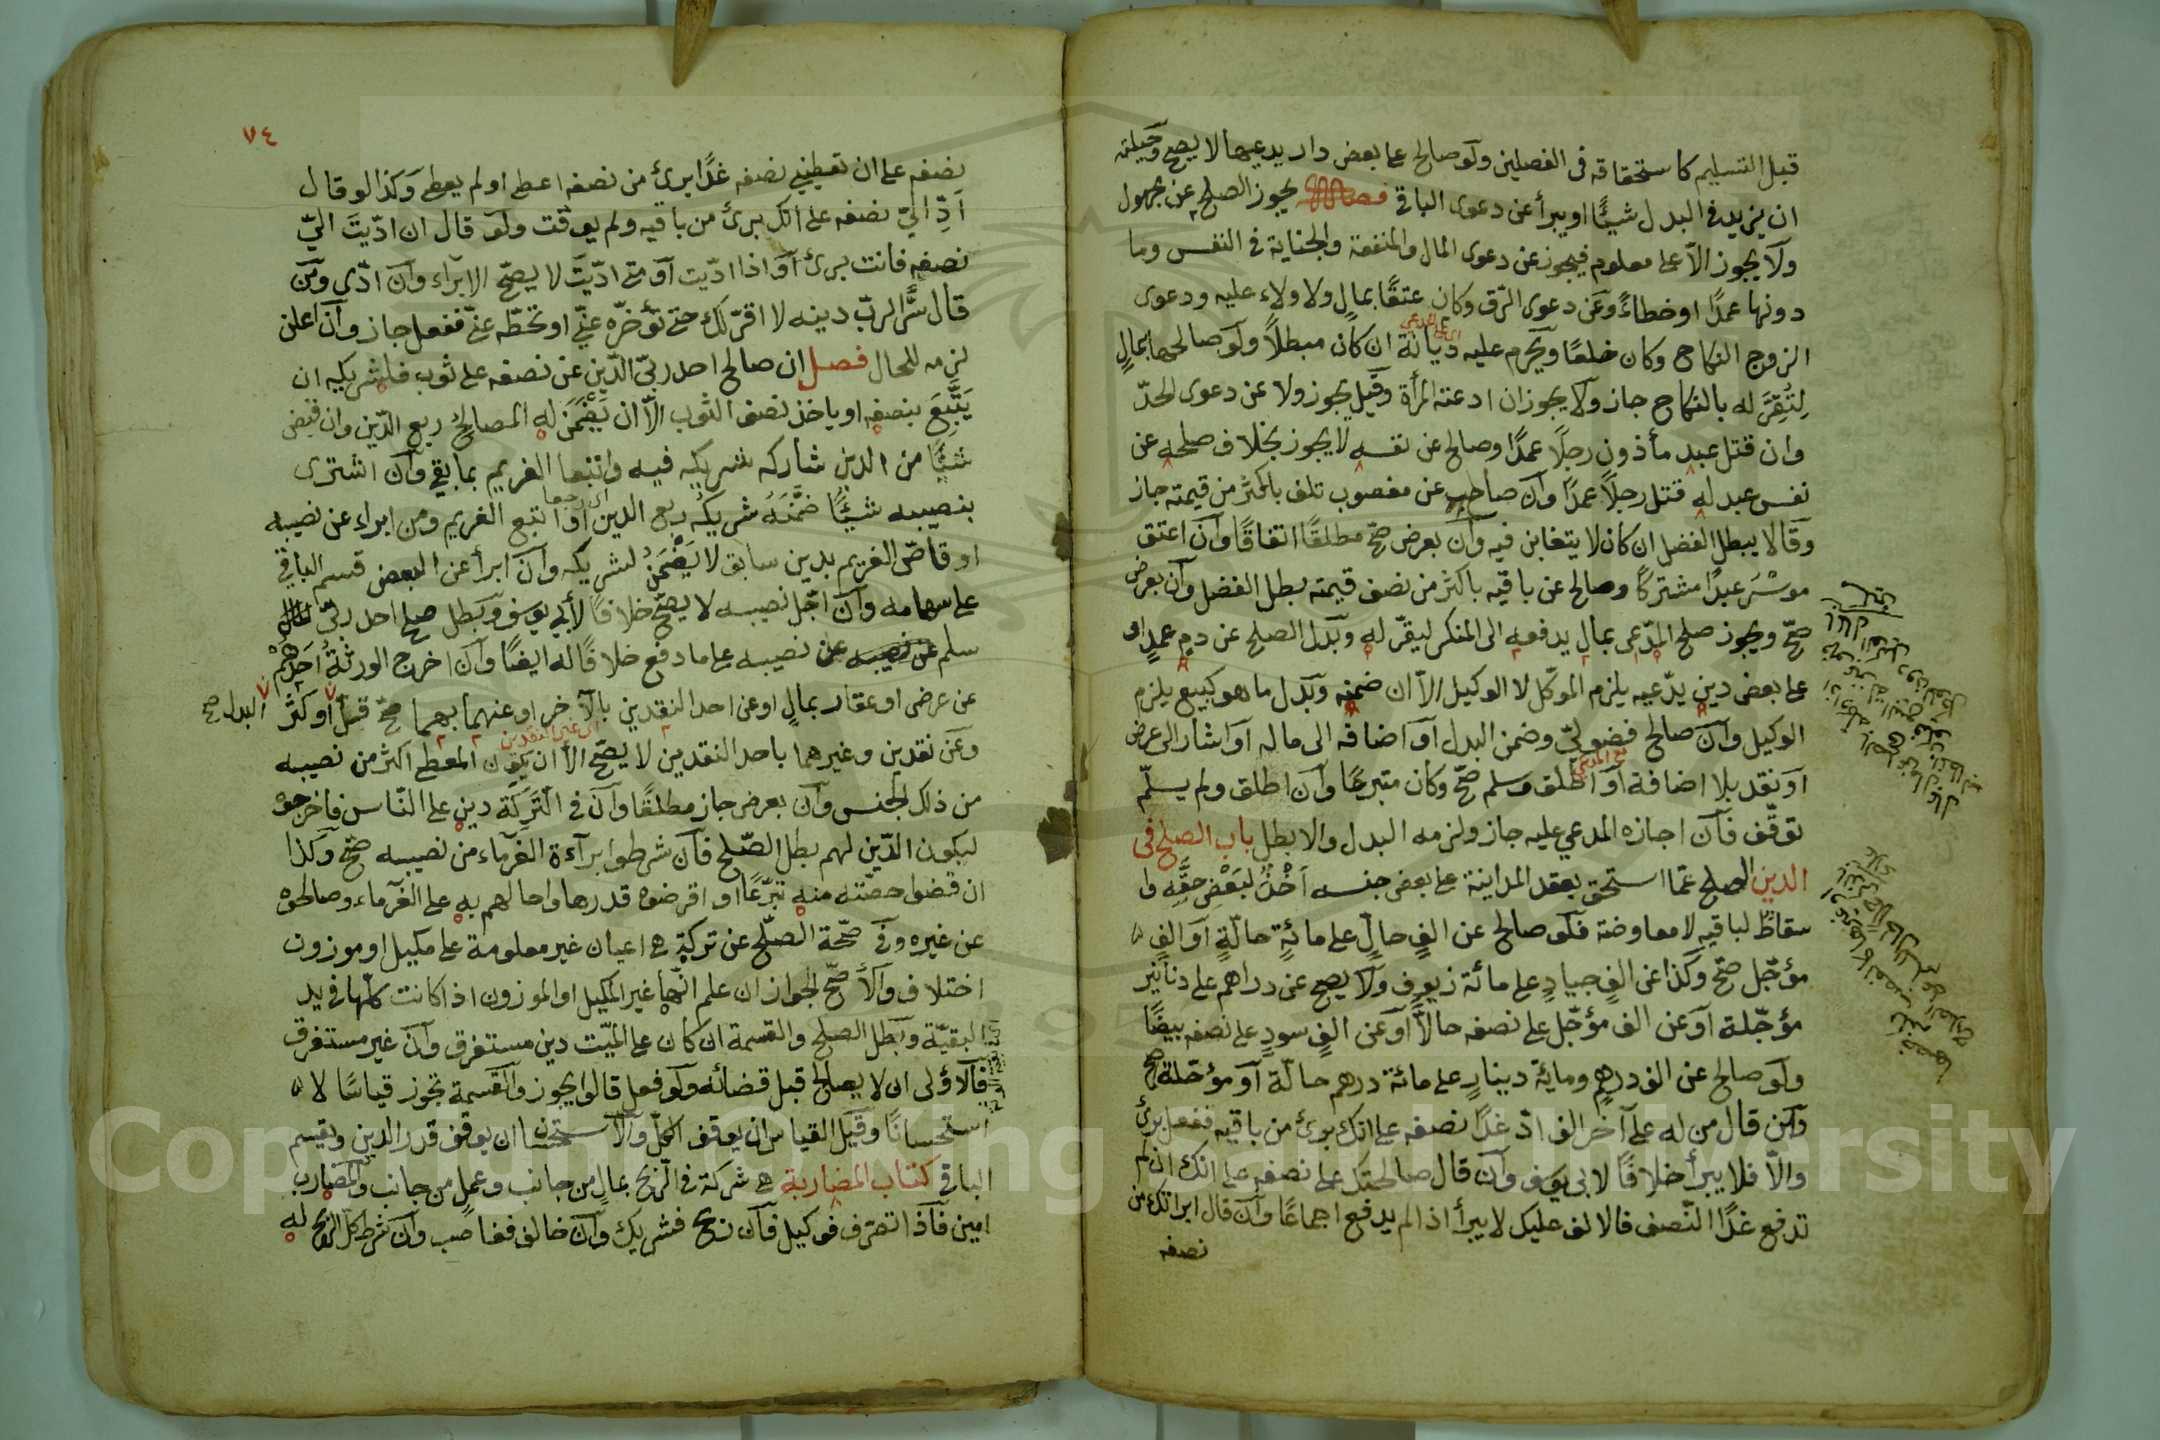 قبل التسليم كاستحقاقه فى الفصلين ولو صالح على بعض دار يدعيها لا يصح وحيلته
ان يزيد فى البدل شيئًا او يبرأ عن دعوى الباقى فصل يجوز الصلح عن مجهول
ولا يجوز الّا على معلوم فيجوز عن دعوى المال والمنفعة والجناية فى النفس وما
دونها عمدًا او خطاءً وعن دعوى الرّق وكان عتقًا بمالٍ ولا ولاء عليه ودعوى
الزوج النكاح وكان خلعًا ويحرم عليه ديانة ان كان مبطلاً ولو صالحها بمالٍ
لِتُقِرَّ له بالنكاح جاز ولا يجوز ان ادعته المرأة وقيل يجوز ولا عن دعوى الحدّ
وان قتل عبد مأذون رجلًا عمدًا وصالح عن نفسه لا يجوز بخلاف صلحه عن
نفس عبد له قتل رجلاً عمدًا وان صالح عن مغصوب تلف باكثر من قيمته جاز
وقالا يبطل الفضل ان كان لا يتغابن فيه وان بعرض صحّ مطلقًا اتفاقًا وان اعتق
موسْر عبدًا مشتركًا وصالح عن باقيه باكثر من نصف قيمته بطل الفضل وان بعرض
صحّ ويجوز صلح المدّعى بمال يدفعه الى المنكر ليقرّ له وبدل الصلح عن دمٍ عمدٍ او
على بعض دين يدّعيه يلزم الموكّل لا الوكيل الّا ان ضمنه وبدل ما هو كبيع يلزم
الوكيل وان صالح فضولىّ وضمن البدل او اضافه الى ماله او اشار الى عرض
او نقد بلا اضافة او اطلق وسلم صحّ وكان متبرعًا وان اطلق ولم يسلّم
توقّف فان اجازه المدعي عليه جاز ولزمه البدل والا بطل باب الصلح فى
الدين الصلح عمّا استحق بعقد المداينة على بعض جنسه أخْذٌ لبَعْضِ حقّه وا
سقاطٌ لباقيه لا معاوضة فلو صالح عن الفٍ حالٍّ على مائةٍ حالّةٍ او الفٍ
مؤجّل صحّ وكذا عن الفٍ جيادٍ على مائة زيوفٍ ولا يصح عن دراهم على دنانير
مؤجّلة او عن الف مؤجّل على نصفه حالًّا او عن الفٍ سودٍ على نصفه بيضًا
ولو صالح عن الف درهم ومائة دينارٍ على مائة درهم حالّة او مؤجّلة صح
ومن قال من له على آخر الف ادّ غدًا نصفه على انك برئ من باقيه ففعل برئ
والّا فلا يبرأ خلافًا لابى يوسف وان قال صالحتك على نصفه على انك ان لم
تدفع غدًا النّصف فالالف عليك لا يبرأ اذا لم يدفع اجماعًا وان قال ابرأتك من
نصفه
٧٤
نصفه على ان تعطينى نصفه غدًا برئ من نصفه اعطى او لم يعطى وكذا لو قال
اَدِّ الىّ نصفه على انك برئ من باقيه ولم يوقّت ولو قال ان ادّيتَ الىّ
نصفه فانت برئ او اذا ادّيت او متى ادّيتَ لا يصحّ الابراء وان ادّى ومن
قال سرًّا لربّ دينه لا اقرّ لك حتى تؤخّره عنّى او تحطّه عنّى ففعل جاز وان اعلن
لزمه للحال فصل ان صالح احد ربّى الدّين عن نصفه على ثوب فلشريكه ان
يَتَّبِعَ بنصفه او ياخذ نصف الثوب الّا ان يَضْمَن له المصالح ربع الدّين وان قبض
شيئًا من الدين شاركه شريكه فيه واتبعا الغريم بما بقى وان اشترى
بنصيبه شيئًا ضمَّنَهُ شريكه ربع الدين او اتبع الغريم ومن ابراء عن نصيبه
او قاصّ الغريم بدين سابق لا يَضْمَنُ لشريكه وان ابرأ عن البعض قسم الباقى
على سهامه وان اجّل نصيبه لا يصحّ خلافًا لأبى يوسف ويبطل صلح احد ربّى
سلم عن نصيبه على ما دفع خلافًا له ايضًا وان اخرج الورثةُ اَحَدهُمْ
عن عرض او عقار بمالٍ او عن احد النقدين بالآخر او عنهما بهما صحّ قلّ او كثر البدل صح
وعن نقدين وغيرهما باحد النقدين لا يصحّ الّا ان يكون المعطى اكثر من نصيبه
من ذلك الجنس وان بعرض جاز مطلقًا وان فى التَّرِكَة دين على النّاس فاخرجوه
ليكون الدّين لهم بطل الصّلح فان شرطوا برآءة الغرماء من نصيبه صحّ وكذا
ان قضوا حصّته منه تبرّعًا او اقرضوه قدرها واحالهم به على الغرماء وصالحوه
عن غيره وفى صحّة الصلّح عن تركةٍ هى اعيان غير معلومة على مكيل او موزون
اختلاف والاصحّ الجواز ان علم انّها غير المكيل او الموزون اذا كانت كلّها فى يد
البقيّة وبطل الصلح والقسمة ان كان على الميّت دين مستغرق وان غير مستغرق
فالاولى ان لا يصالح قبل قضائه ولو فعل قالوا يجوز والقسمة تجوز قياسًا لا
استحسانًا وقيل القياس ان يوقف الكلّ والاستحسان ان يوقف قدر الدين ويقسم
الباقى كتاب المضاربة هى شركة فى الرّبح بمالٍ من جانب وعملٍ من جانب والمضارب
امين فاذا تصرّف فوكيل فان ربح فشريك وان خالف فغاصب وان شرط كل الربح له